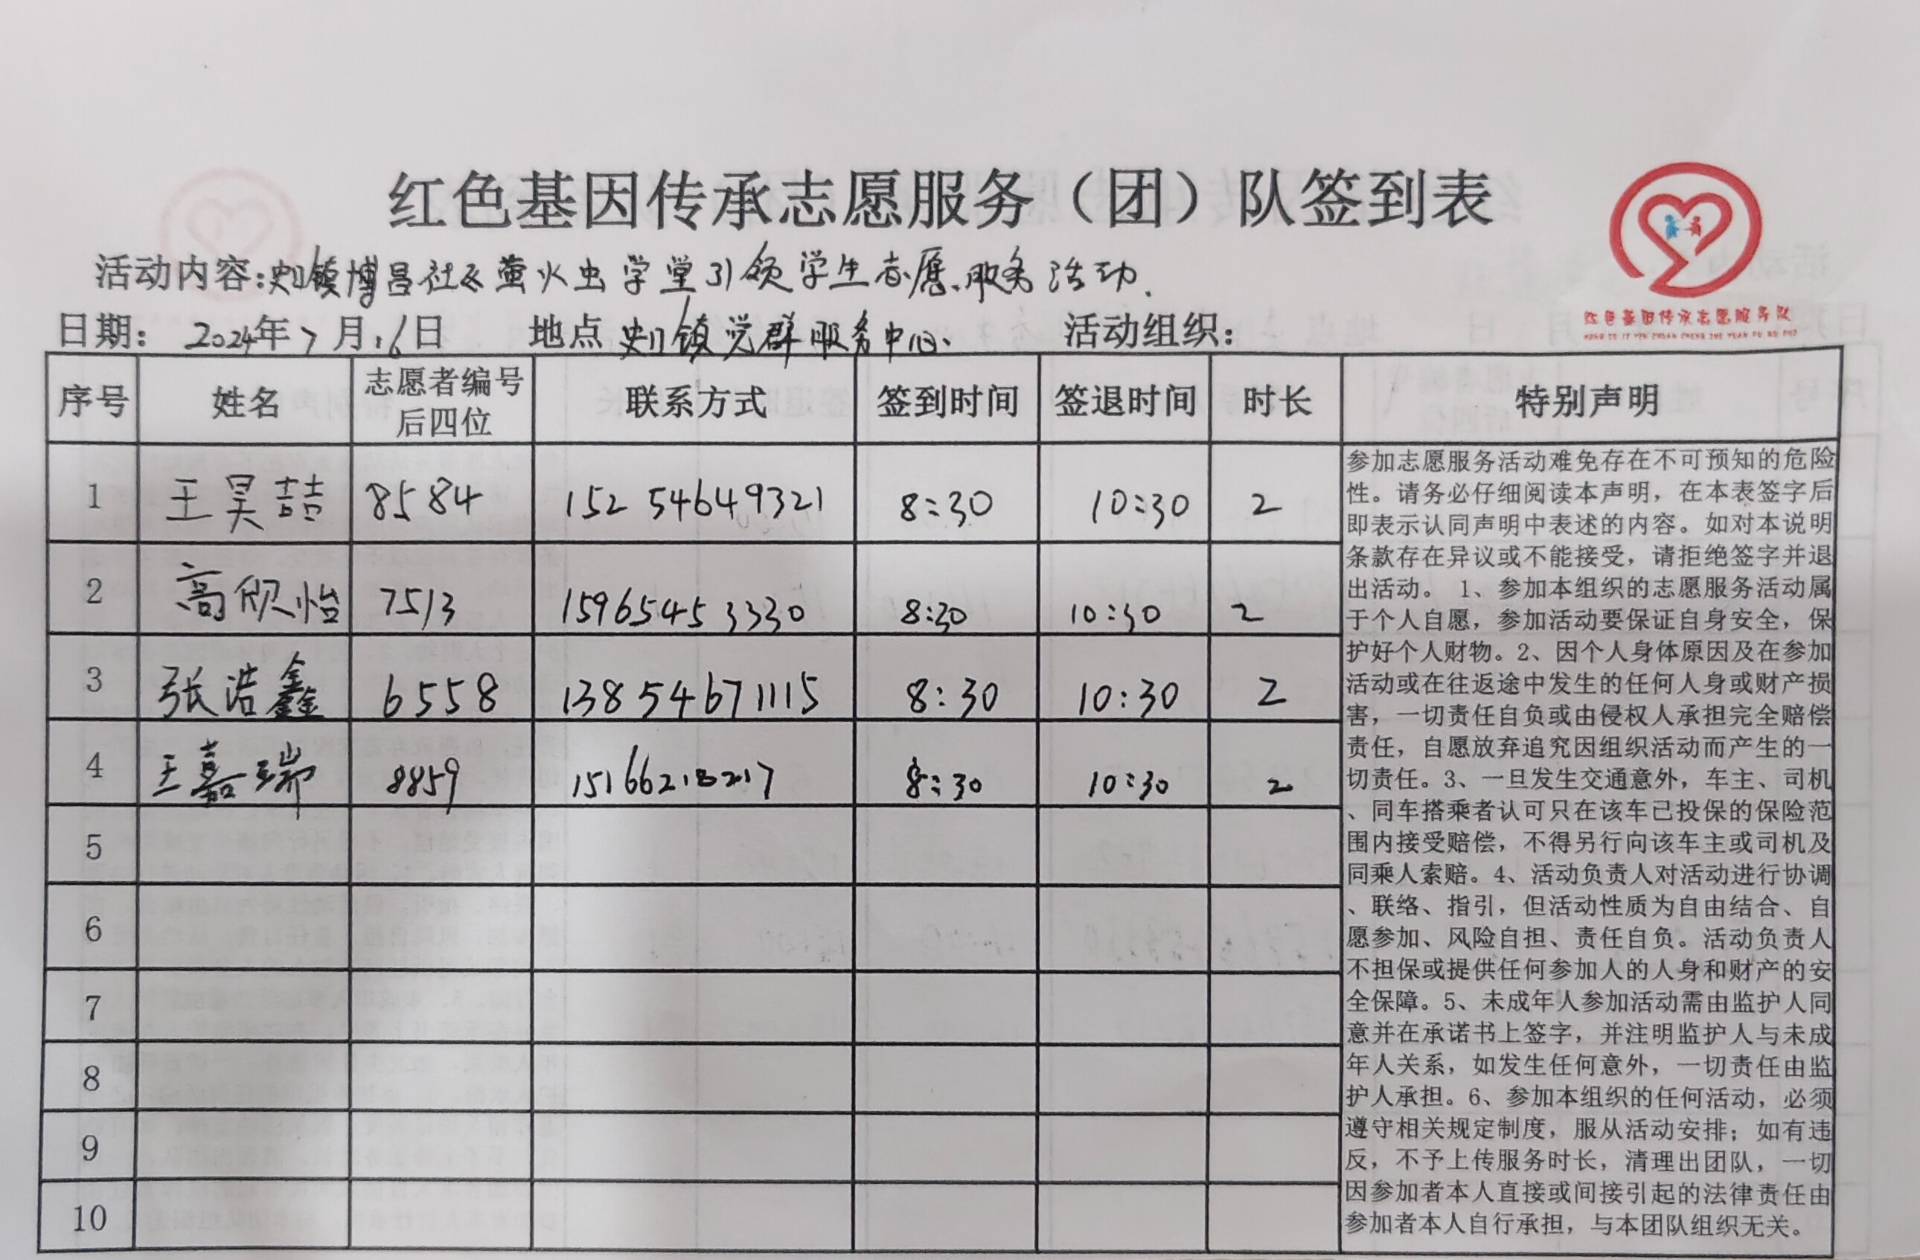 红色基因传承志愿服务（团）队签到表
活动内容:史口镇博昌社区萤火虫学堂引领学生志愿服务活动.
日期: 2024年7月16日 地点 史口镇党群服务中心. 活动组织:
红色基因传承志愿服务队
HONG SE JI YIN CHUAN CHENG ZHI YUAN FU WU DUI
序号 姓名 志愿者编号后四位 联系方式 签到时间 签退时间 时长 特别声明
1 王昊喆 8584 152 54649321 8:30 10:30 2
2 高欣怡 7513 1596545 3330 8:30 10:30 2
3 张浩鑫 6558 13854671115 8:30 10:30 2
4 王嘉瑞 8859 15166218217 8:30 10:30 2
5
6
7
8
9
10
参加志愿服务活动难免存在不可预知的危险
性。请务必仔细阅读本声明，在本表签字后
即表示认同声明中表述的内容。如对本说明
条款存在异议或不能接受，请拒绝签字并退
出活动。 1、参加本组织的志愿服务活动属
于个人自愿，参加活动要保证自身安全，保
护好个人财物。2、因个人身体原因及在参加
活动或在往返途中发生的任何人身或财产损
害，一切责任自负或由侵权人承担完全赔偿
责任，自愿放弃追究因组织活动而产生的一
切责任。3、一旦发生交通意外，车主、司机
、同车搭乘者认可只在该车已投保的保险范
围内接受赔偿，不得另行向该车主或司机及
同乘人索赔。4、活动负责人对活动进行协调
、联络、指引，但活动性质为自由结合、自
愿参加、风险自担、责任自负。活动负责人
不担保或提供任何参加人的人身和财产的安
全保障。5、未成年人参加活动需由监护人同
意并在承诺书上签字，并注明监护人与未成
年人关系，如发生任何意外，一切责任由监
护人承担。6、参加本组织的任何活动，必须
遵守相关规定制度，服从活动安排；如有违
反，不予上传服务时长，清理出团队，一切
因参加者本人直接或间接引起的法律责任由
参加者本人自行承担，与本团队组织无关。